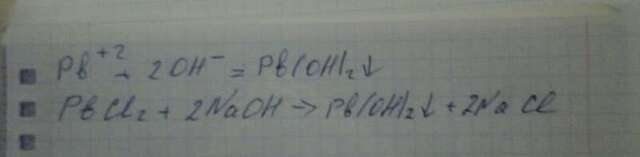 Pb⁺² + 2OH⁻ = Pb(OH)₂↓
PbCl₂ + 2NaOH → Pb(OH)₂↓ + 2NaCl